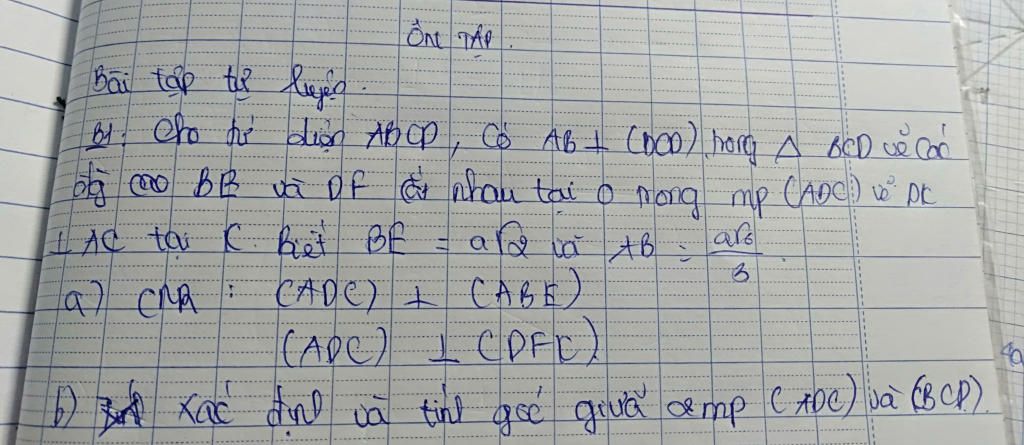 ÔN TẬP.
Bài tập tự luyện.
B1: Cho tứ diện ABCD, Có AB ⊥ (BCD) trong Δ BCD vẽ các
đg cao BE và DF cắt nhau tại O trong mp (ADC) vẽ DK
⊥ AC tại K. Biết BE = a√2 và AB = a√6/3.
a) CMR : (ADC) ⊥ (ABE)
(ADC) ⊥ (DFK)
b) xác định và tính góc giữa 2 mp (ADC) và (BCD).